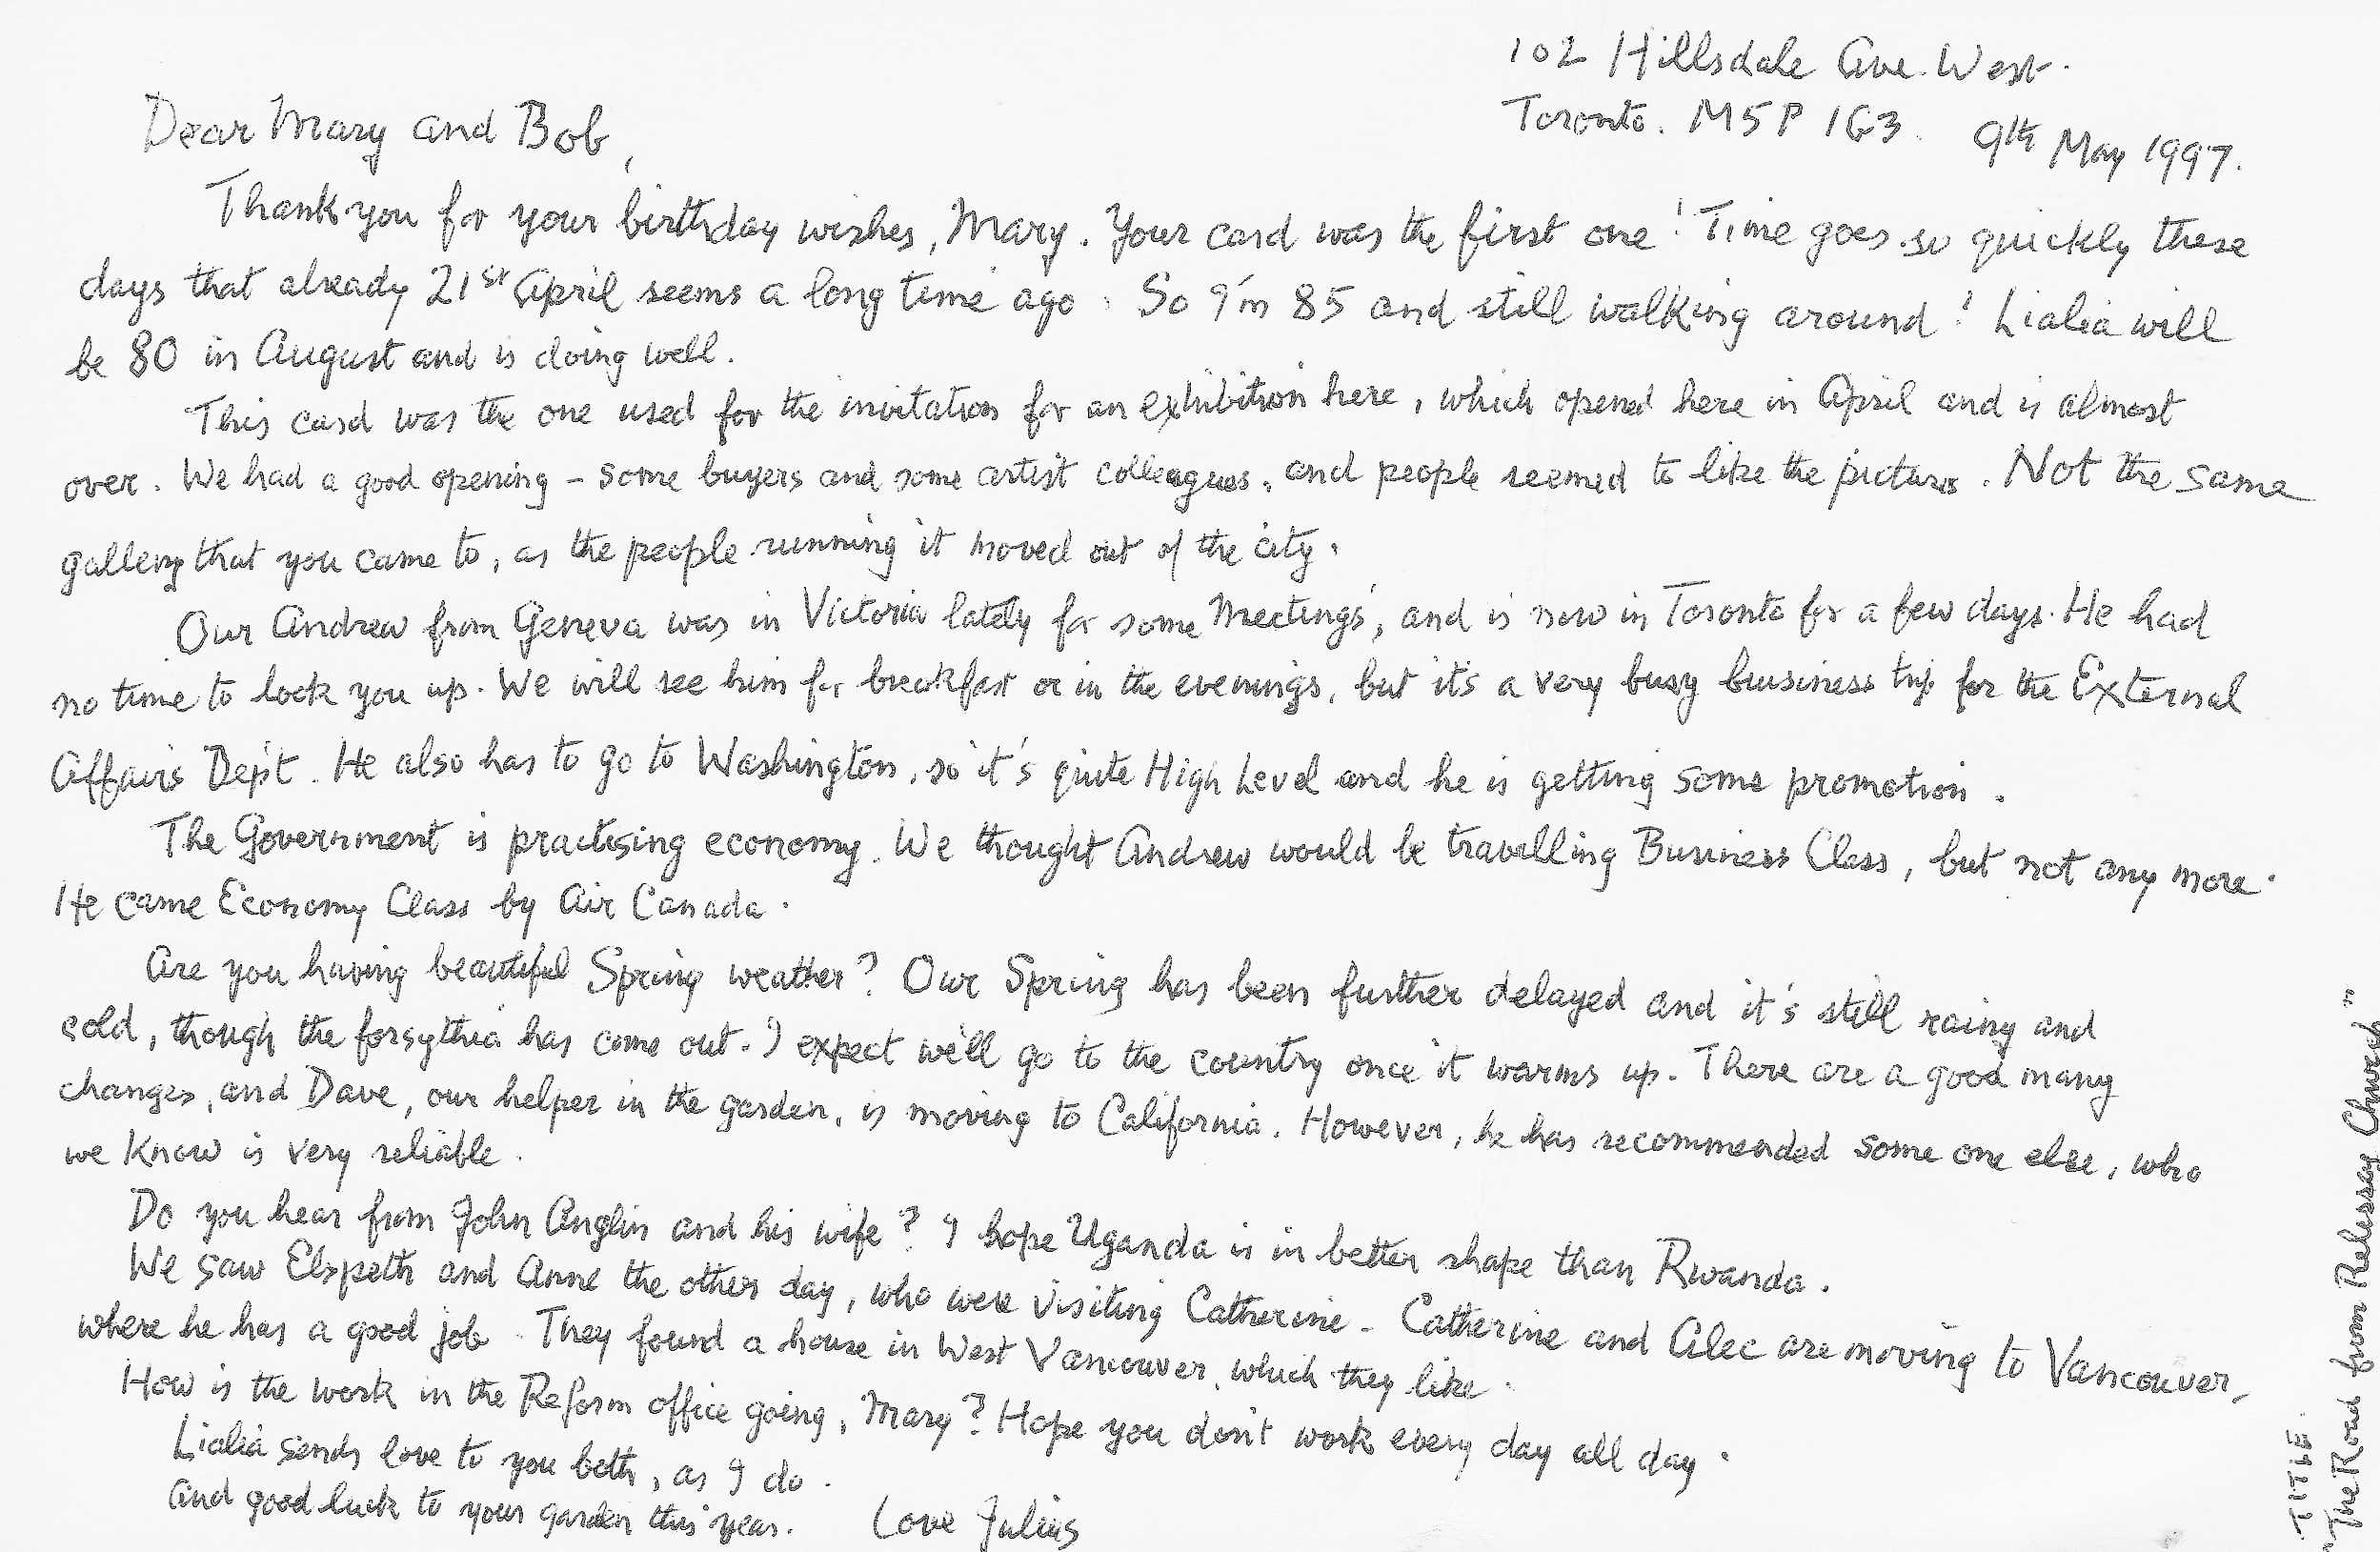 102 Hillsdale Ave. West.
Toronto. M5P 1G3. 9th May 1997.
Dear Mary and Bob,
Thank you for your birthday wishes, Mary. Your card was the first one! Time goes so quickly these
days that already 21st April seems a long time ago. So I'm 85 and still walking around! Lialia will
be 80 in August and is doing well.
This card was the one used for the invitation for an exhibition here, which opened here in April and is almost
over. We had a good opening - some buyers and some artist colleagues, and people seemed to like the pictures. Not the same
gallery that you came to, as the people running it moved out of the city.
Our Andrew from Geneva was in Victoria lately for some Meetings, and is now in Toronto for a few days. He had
no time to look you up. We will see him for breakfast or in the evenings, but it's a very busy business trip for the External
Affairs Dep't. He also has to go to Washington, so it's quite High Level and he is getting some promotion.
The Government is practising economy. We thought Andrew would be travelling Business Class, but not any more.
He came Economy Class by Air Canada.
Are you having beautiful Spring weather? Our Spring has been further delayed and it's still rainy and
cold, though the forsythia has come out. I expect we'll go to the country once it warms up. There are a good many
changes, and Dave, our helper in the garden, is moving to California. However, he has recommended some one else, who
we know is very reliable.
Do you hear from John Anglin and his wife? I hope Uganda is in better shape than Rwanda.
We saw Elspeth and Anne the other day, who were visiting Catherine. Catherine and Alec are moving to Vancouver,
where he has a good job. They found a house in West Vancouver, which they like.
How is the work in the Reform office going, Mary? Hope you don't work every day all day.
Lialia sends love to you both, as I do.
And good luck to your garden this year. Love Julius
TITLE.
"The Road from Relessey Church"